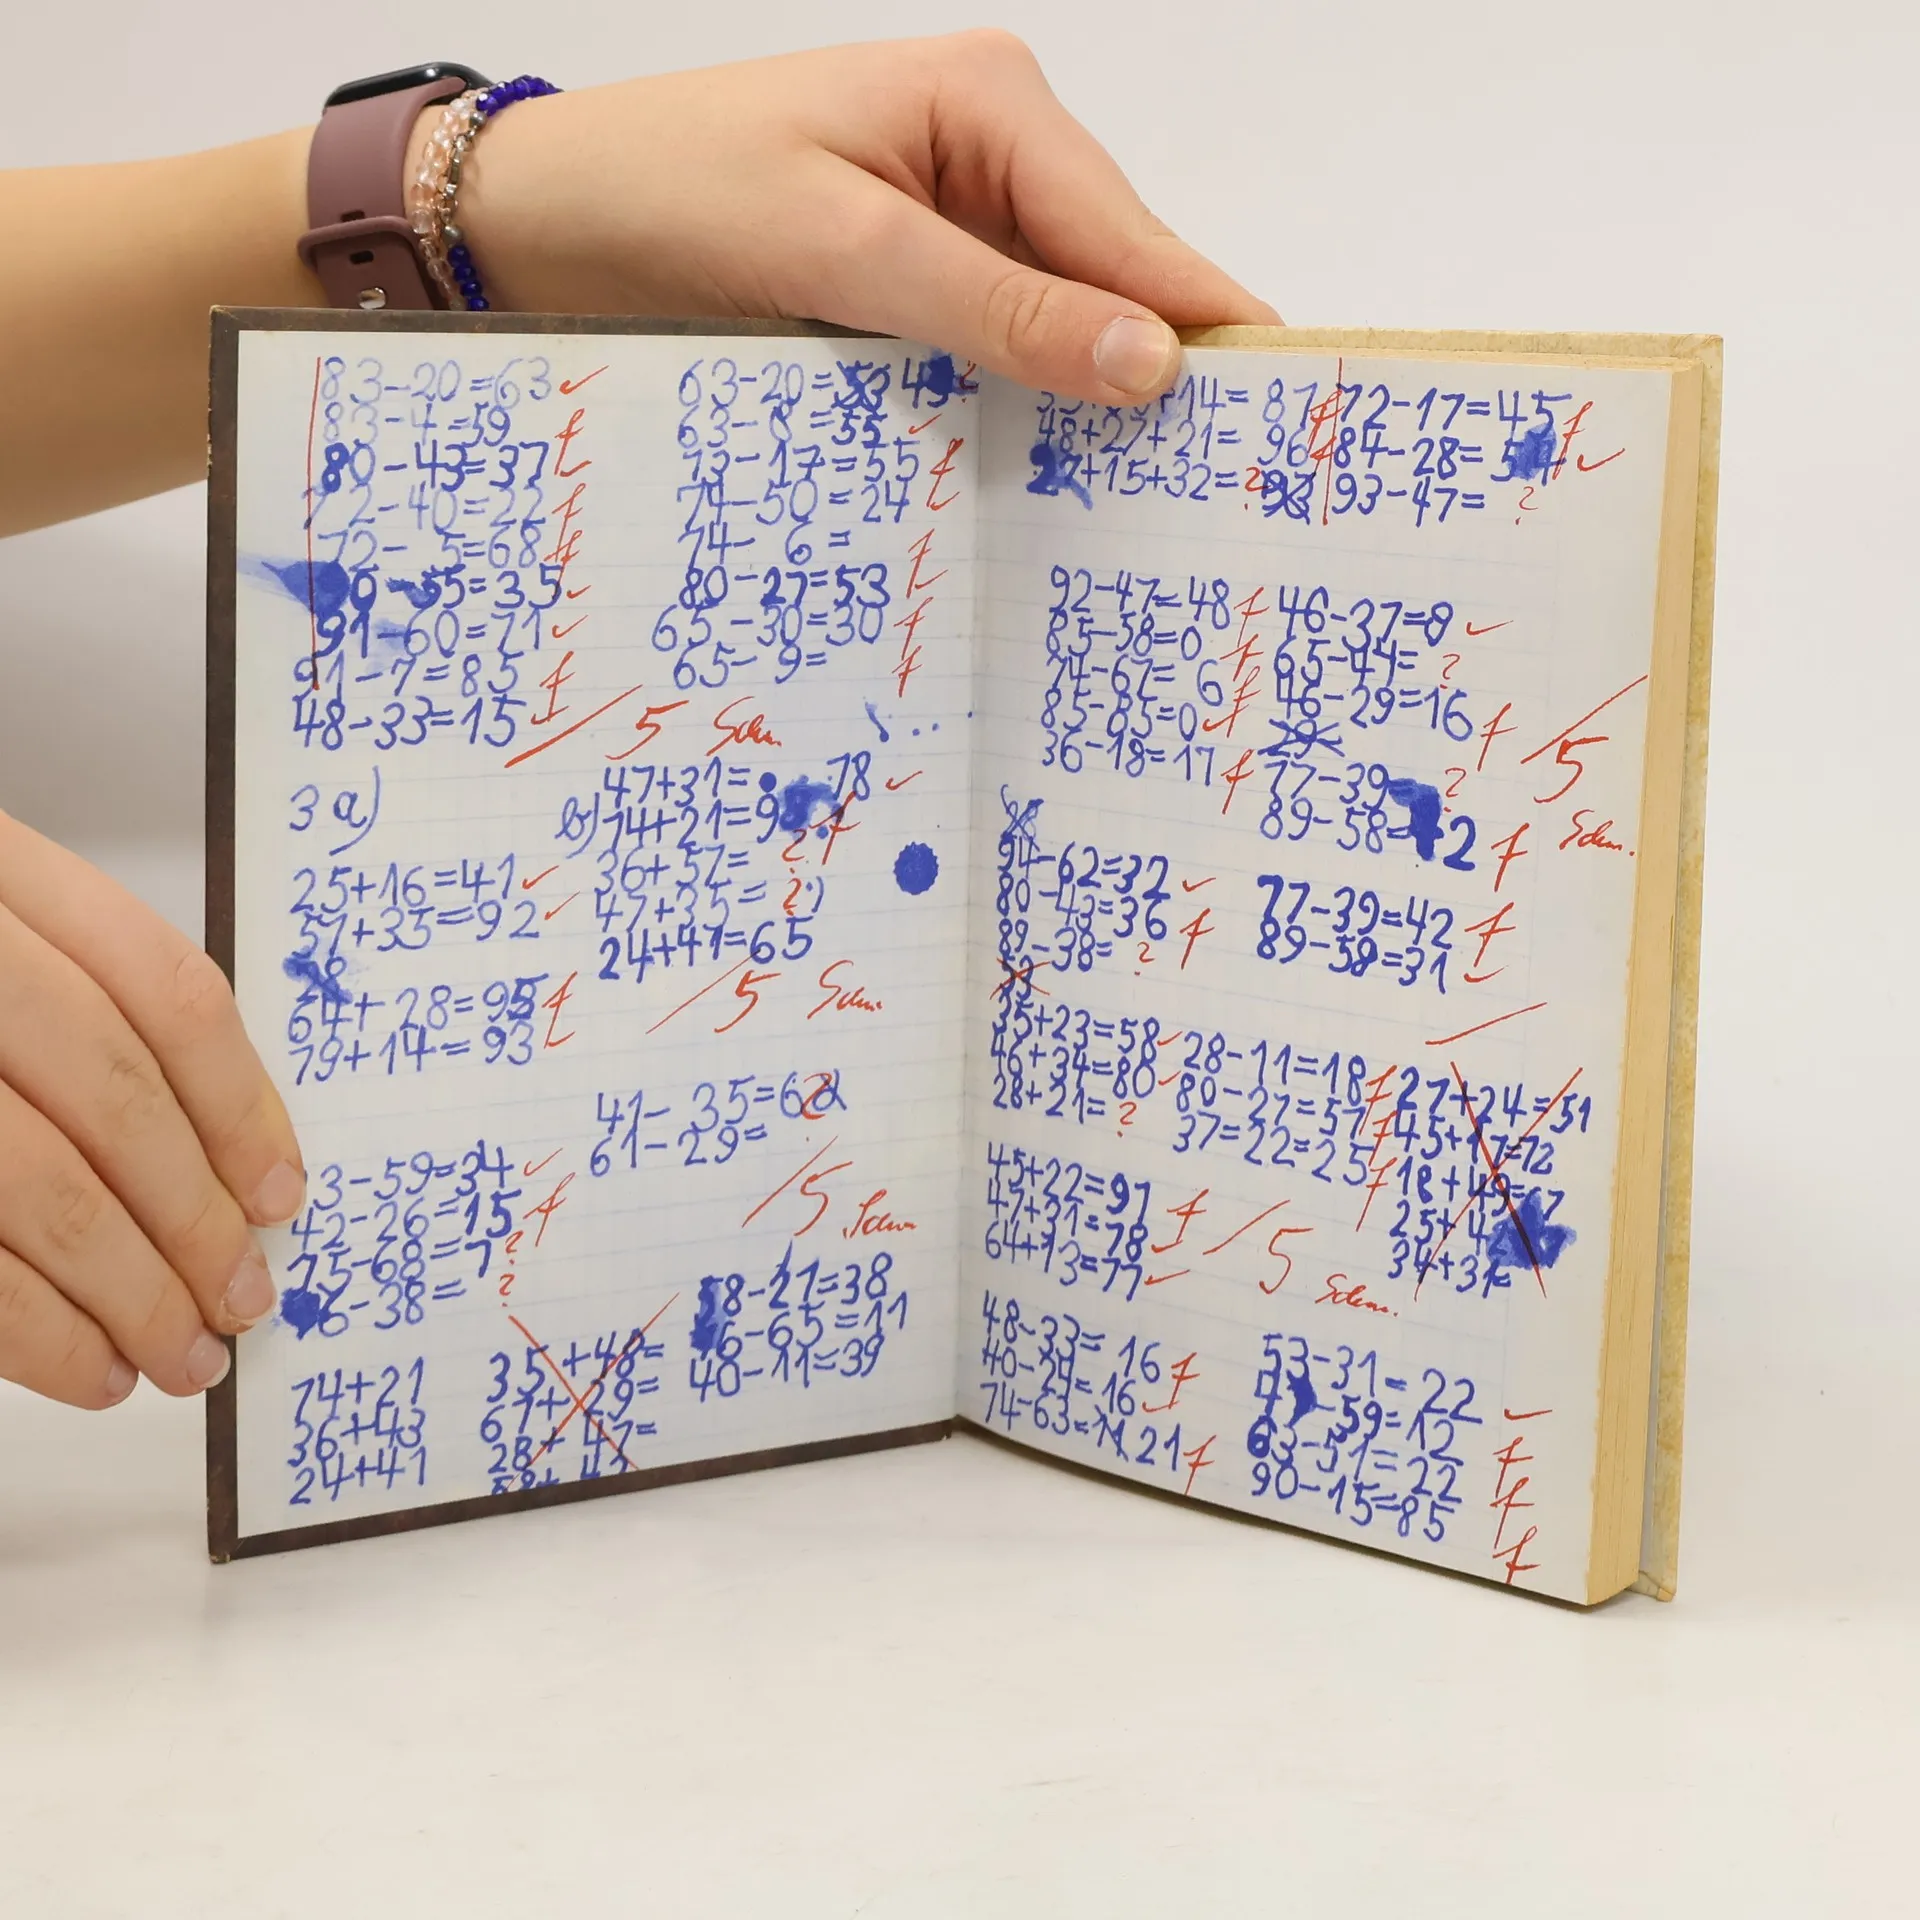 83-20=63 ✓
83-4=59 f
80-43=37
72-40=22 f
72- 5=68 f
90-55=35 ✓
91-60=71 ✓
91-7=85 f
48-33=15 ✓
63-20= 4 ?
63-8=55 ✓
73-17=55 f
74-50=24
74- 6=
80-27=53
65-30=30 f
65- 9= f
5 Schm.
3a)
25+16=41 ✓
57+35=92 ✓
64+28=95 f
79+14=93
b) 47+31= 78 ✓
74+21=9 f
36+57= ?
47+35= ?
24+41=65
5 Schm.
3-59=34 ✓
42-26=15 f
75-68=7 ?
6-38= ?
41-35=6
61-29=
5 Schm.
74+21
36+43
24+41
35+48=
67+29=
28+47=
58-21=38
6-65=11
40-11=39
+14= 87 f
48+27+21= 96 f
27+15+32= ? 93
72-17=45 f
84-28=54 ✓
93-47= ?
92-47=48 f
85-58=0 f
74-67= 6 f
85-85=0 ✓
36-18=17 f
46-37=9 ✓
65-44= ?
46-29=16 f
29
77-39 ?
89-58= 2 f
5 Schm.
94-62=32 ✓
80-43=36 f
89-38= ?
53
77-39=42 f
89-58=31 ✓
35+23=58 ✓
46+34=80 ✓
28+21= ?
28-11=18 f
80-27=57 f
37=22=25 f
27+24=51
45+17=72
18+49=67
25+4
34+31=
45+22=97 f
47+31=78 ✓
64+13=77 ✓
5 Schm.
48-33= 16 f
40-24= 16 ✓
74-63= 21 f
53-31= 22 ✓
-59= 12 f
63-51= 22 f
90-15=85 f